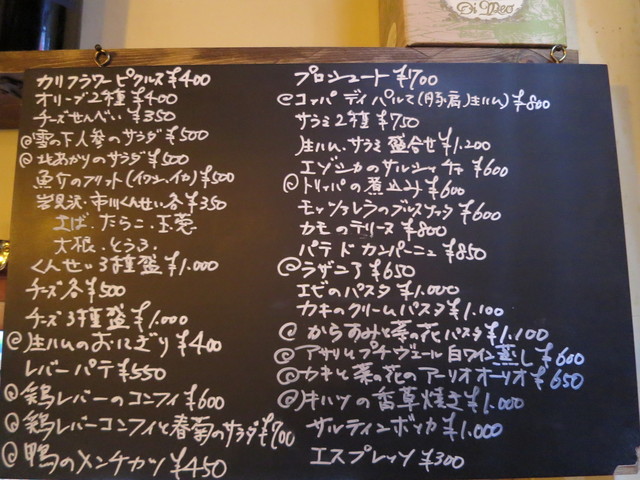 Di Meo
カリフラワーピクルス ¥400
オリーブ2種 ¥400
チーズせんべい ¥350
@雪の下人参のサラダ ¥500
@北あかりのサラダ ¥500
魚介のフリット(イワシ、イカ) ¥500
岩見沢・市川くんせい各 ¥350
さば・たらこ・玉葱
大根・とうふ・
くんせい3種盛 ¥1.000
チーズ各 ¥500
チーズ3種盛 ¥1.000
@生ハムのおにぎり ¥400
レバーパテ ¥550
@鶏レバーのコンフィ ¥600
@鶏レバーコンフィと春菊のサラダ ¥700
@鴨のメンチカツ ¥450
プロシュート ¥1700
@コッパ ディ パルマ(豚肩生ハム) ¥800
サラミ2種 ¥750
生ハム、サラミ盛合せ ¥1.200
エゾシカのサルシッチャ ¥600
@トリッパの煮込み ¥600
モッツァレラのブルスケッタ ¥600
カモのテリーヌ ¥800
パテ ド カンパーニュ ¥850
@ラザニア ¥650
エビのパスタ ¥1.000
カキのクリームパスタ ¥1.100
@からすみと菜の花パスタ ¥1.100
@アサリとプチヴェール白ワイン蒸し ¥600
@カキと菜の花のアーリオオーリオ ¥650
@牛ハツの香草焼き ¥1.000
サルティンボッカ ¥1.000
エスプレッソ ¥300